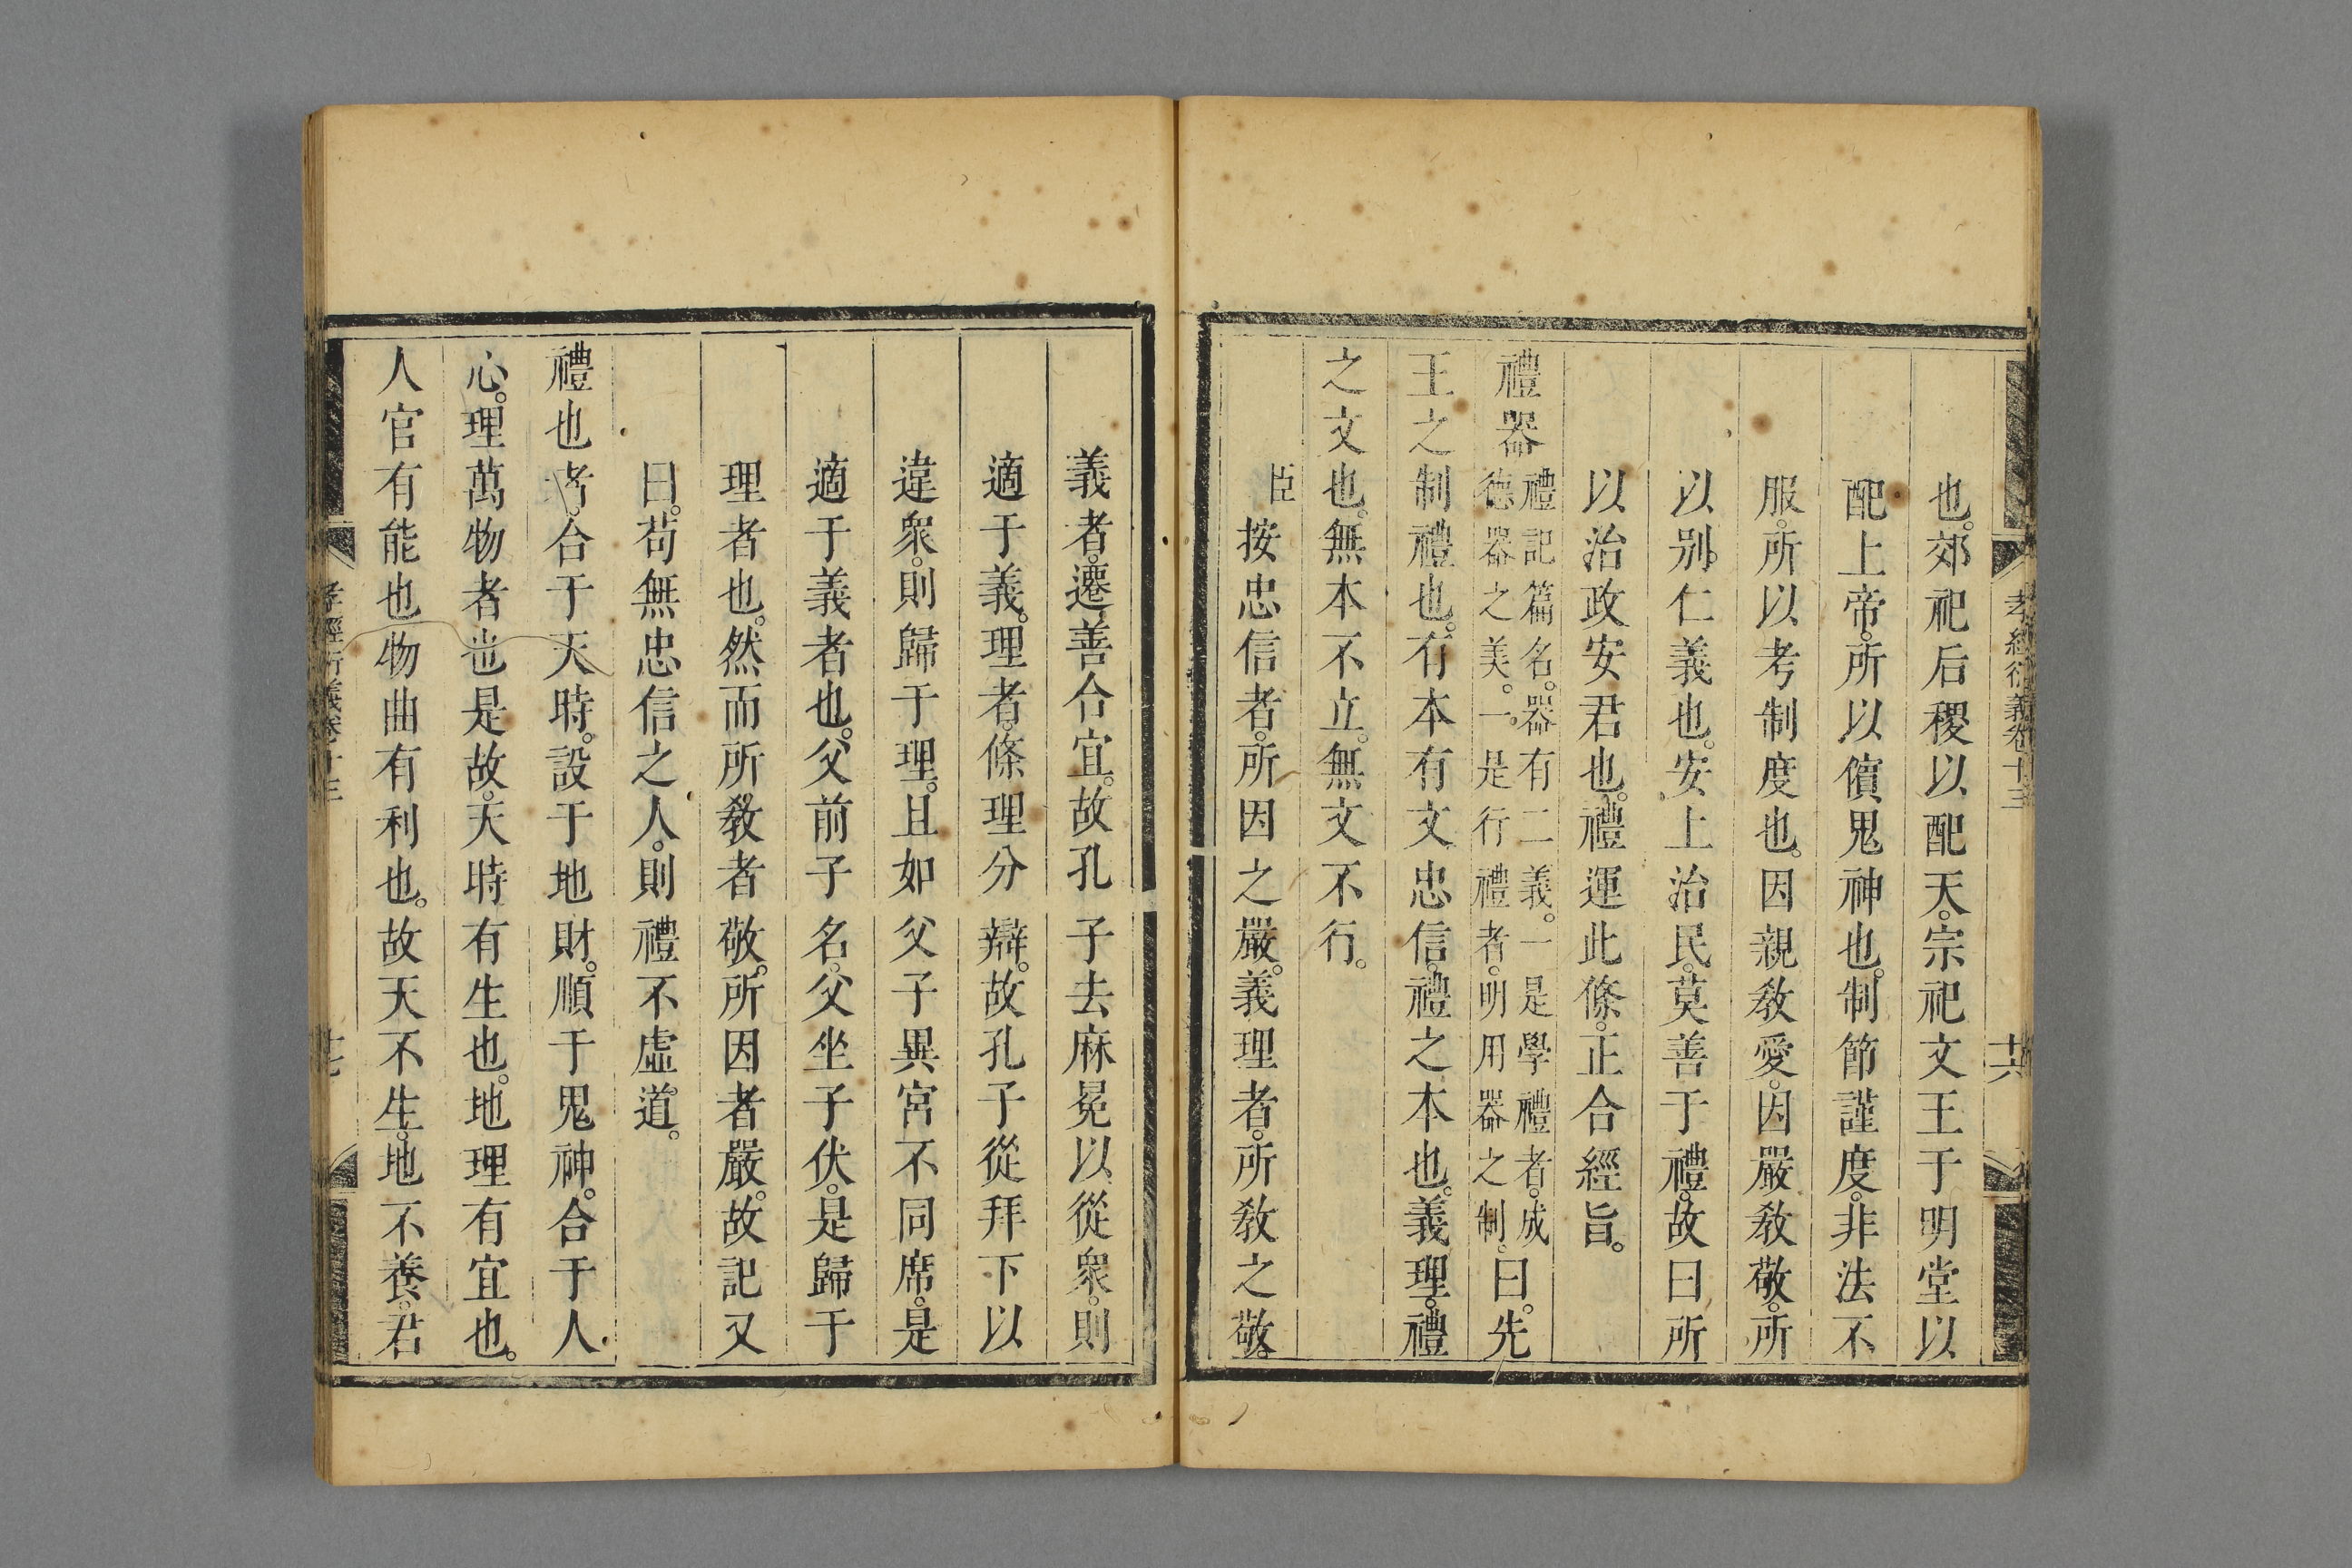 孝經衍義卷十三
十六
也。郊祀后稷以配天。宗祀文王于明堂以
配上帝。所以儐鬼神也。制節謹度。非法不
服。所以考制度也。因親教愛。因嚴教敬。所
以别。仁義也。安上治民。莫善于禮。故曰所
以治政安君也。禮運此條。正合經旨。
禮器禮記篇名。器有二義。一是學禮者。成
德器之美。一是行禮者。明用器之制。曰。先
王之制禮也。有本有文。忠信。禮之本也。義理。禮
之文也。無本不立。無文不行。
臣按忠信者。所因之嚴。義理者。所敎之敬。
義者。遷善合宜。故孔子去麻冕以從衆。則
適于義。理者。條理分辯。故孔子從拜下以
違衆。則歸于理。且如父子異宮不同席。是
適于義者也。父前子名。父坐子伏。是歸于
理者也。然而所敎者敬。所因者嚴。故記又
曰。苟無忠信之人。則禮不虛道。
禮也者。合于天時。設于地財。順于鬼神。合于人
心。理萬物者也是故。天時有生也。地理有宜也。
人官有能也物曲有利也。故天不生。地不養。君
孝經衍義卷十三
十七